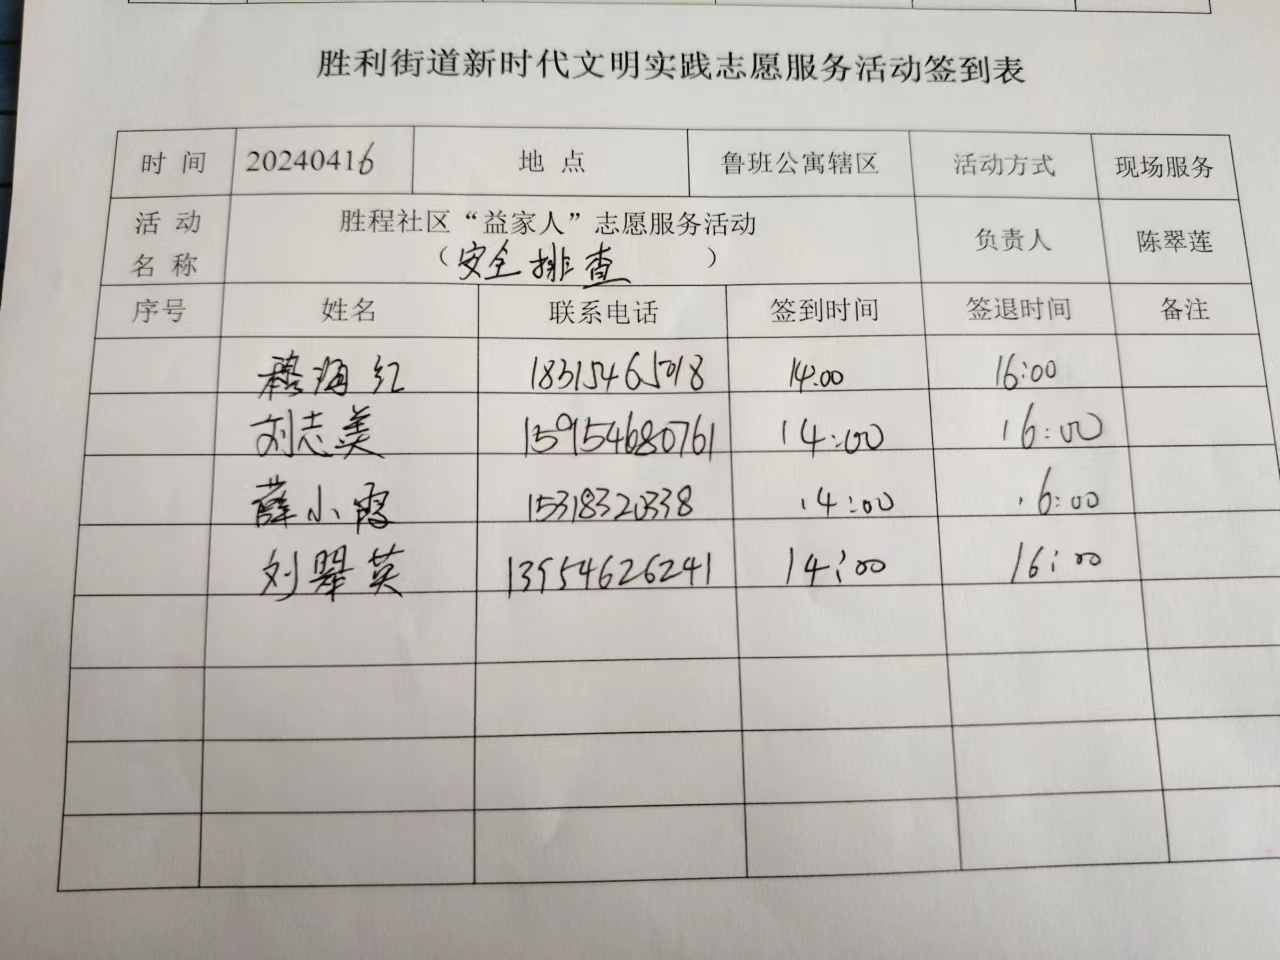 胜利街道新时代文明实践志愿服务活动签到表
时 间 20240416 地 点 鲁班公寓辖区 活动方式 现场服务
活 动 名 称 胜程社区“益家人”志愿服务活动 （安全排查） 负责人 陈翠莲
序号 姓名 联系电话 签到时间 签退时间 备注
海红 18315465018 14:00 16:00
刘志美 15954680761 14:00 16:00
薛小霞 15318320338 14:00 16:00
刘翠英 13954626241 14:00 16:00